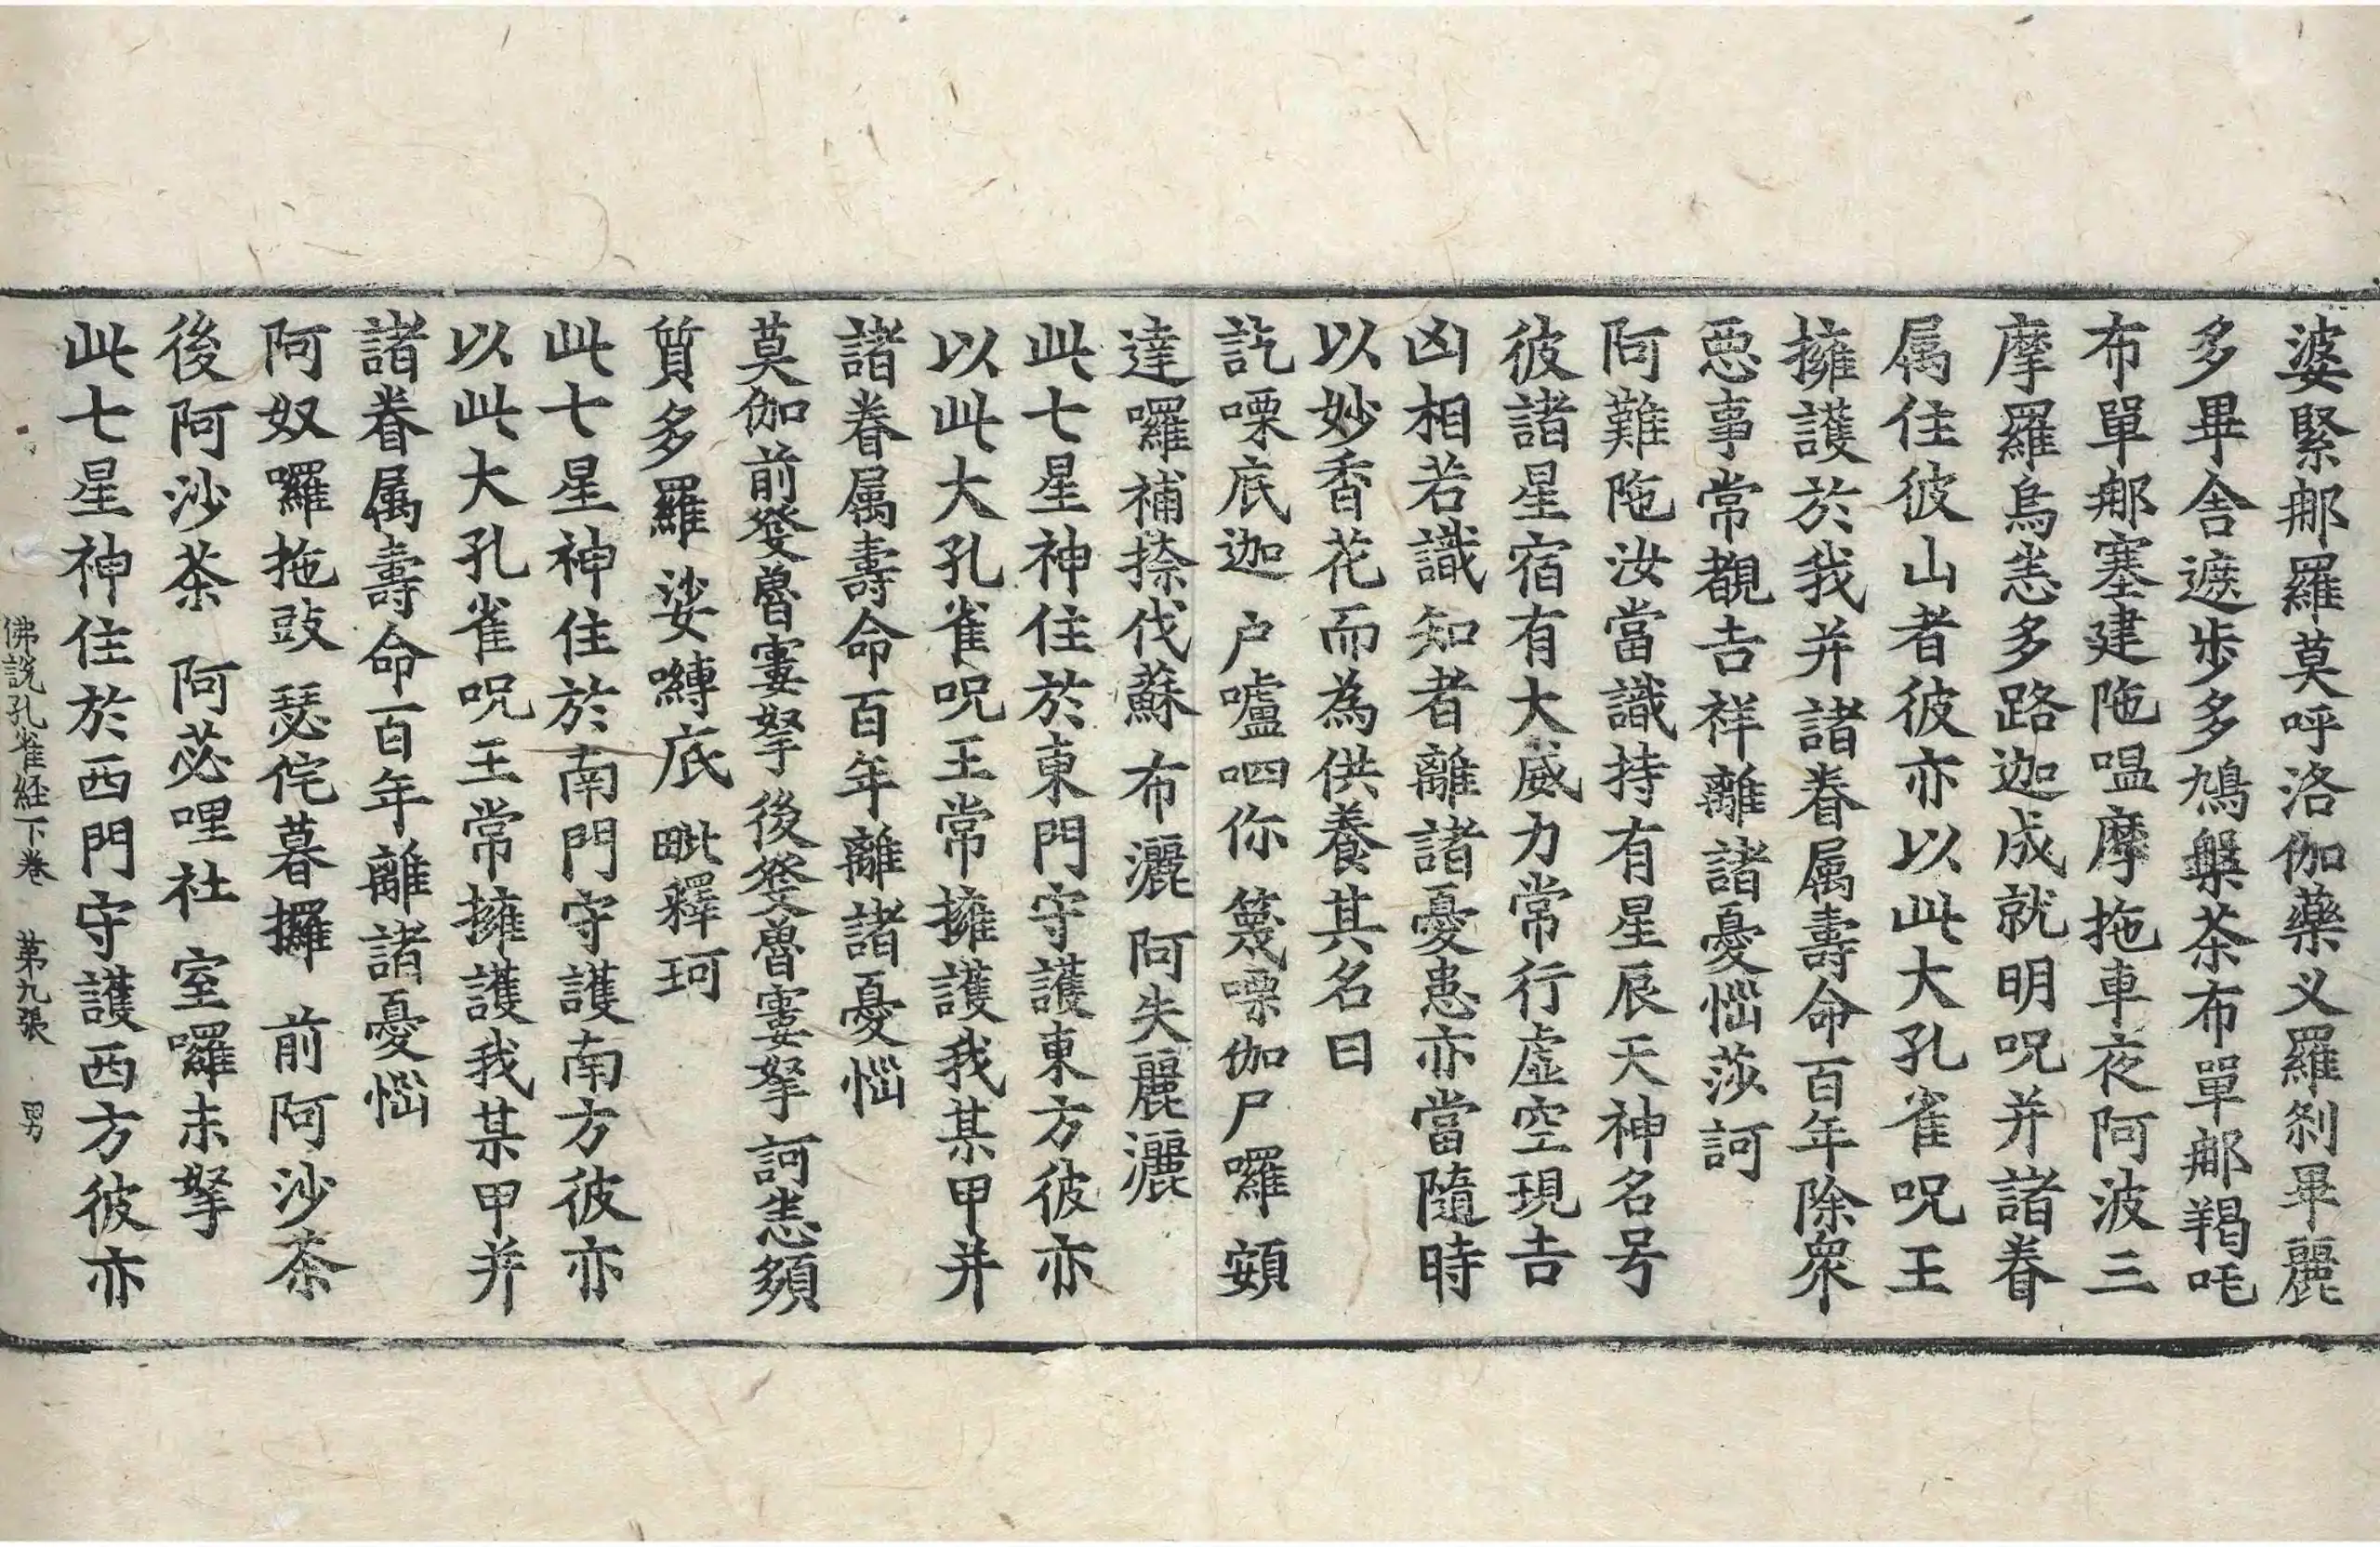 婆緊𨚗羅莫呼洛伽藥叉羅剎畢麗
多畢舍遮步多鳩槃茶布單𨚗羯吒
布單𨚗塞建陁嗢摩拖車夜阿波三
摩羅烏恙多路迦成就明呪并諸眷
属住彼山者彼亦以此大孔雀呪王
擁護於我并諸眷属壽命百年除衆
惡事常覩吉祥離諸憂惱莎訶
阿難陁汝當識持有星辰天神名号
彼諸星宿有大威力常行虛空現吉
凶相若識知者離諸憂患亦當隨時
以妙香花而為供養其名曰
訖㗚底迦 户嚧呬你 篾㗚伽尸囉 頞
達囉補捺伐蘇 布灑 阿失麗灑
此七星神住於東門守護東方彼亦
以此大孔雀呪王常擁護我某甲并
諸眷属壽命百年離諸憂惱
莫伽前發魯窶拏後發魯窶拏訶恙頞
質多羅 娑嚩底 毗釋珂
此七星神住於南門守護南方彼亦
以此大孔雀呪王常擁護我某甲并
諸眷属壽命百年離諸憂惱
阿奴囉拖 豉瑟侘 暮攞 前阿沙茶
後阿沙茶 阿苾哩社 室囉末拏
此七星神住於西門守護西方彼亦
佛說孔雀経下卷 苐九張 男